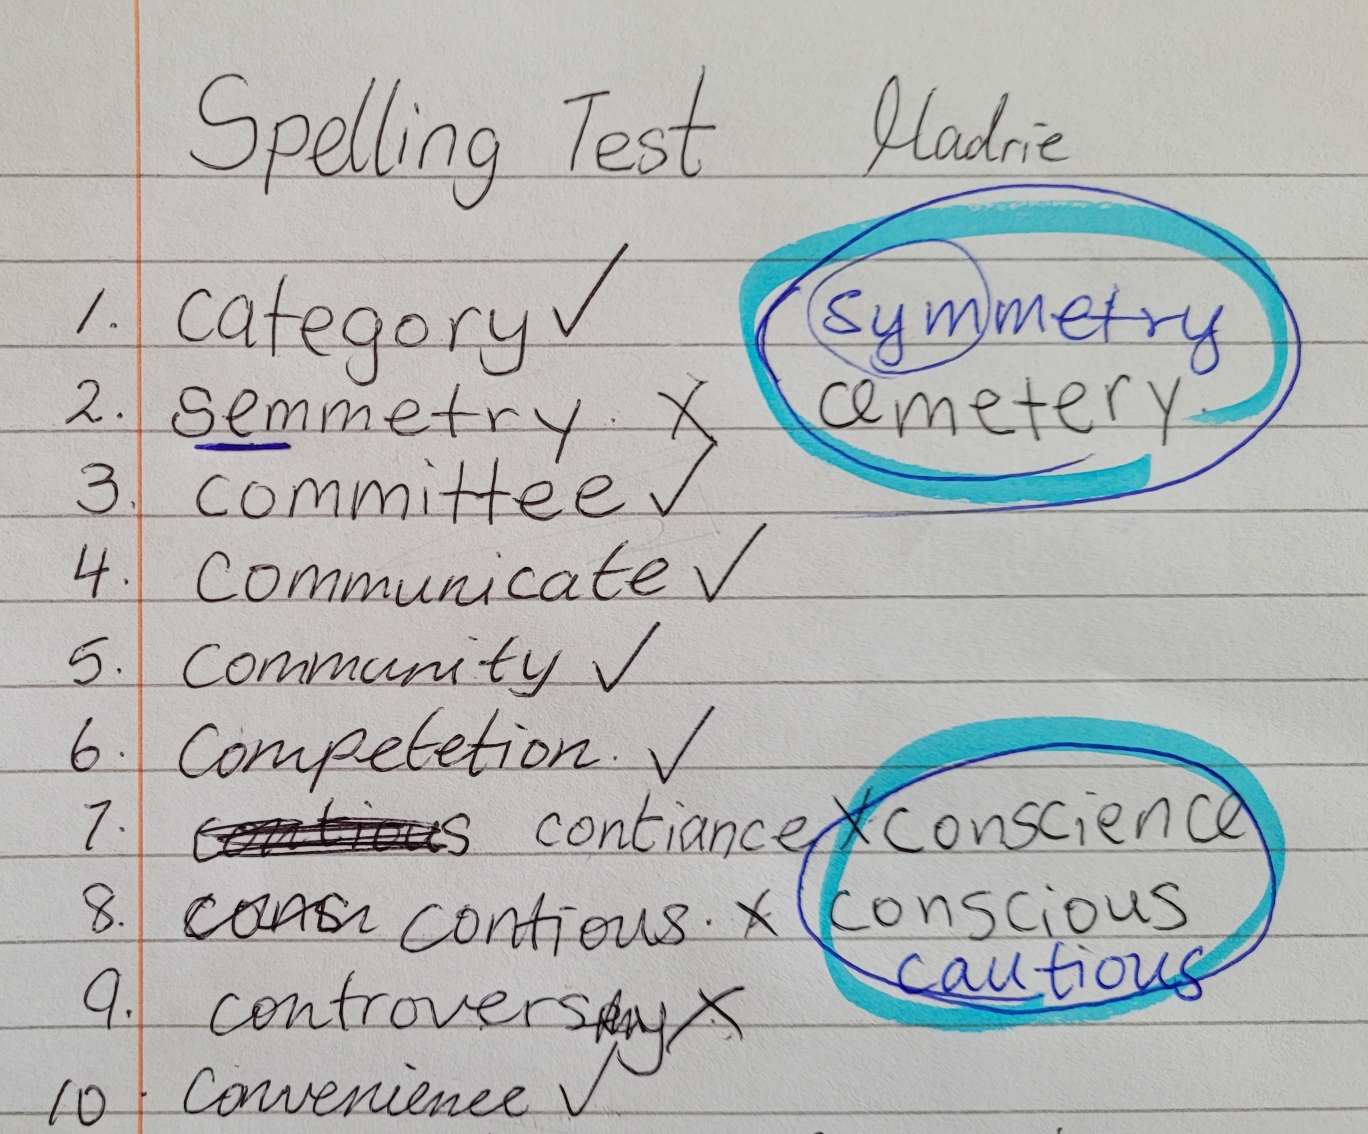 Spelling Test Madrie
1. category ✓ symmetry
2. semmetry. X cemetery
3. committee ✓
4. communicate ✓
5. community ✓
6. competetion. ✓
7. contious contiance X conscience
8. contious. X conscious
cautious
9. X
10. convenience ✓